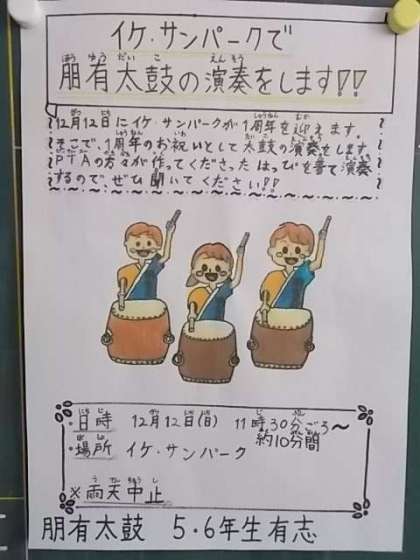 イケ・サンパークで
朋有太鼓の演奏をします!!
12月12日にイケ・サンパークが1周年を迎えます。
そこで、1周年のお祝いとして太鼓の演奏をします。
PTAの方々が作ってくださったはっぴを着て演奏
するので、ぜひ聞いてください!!
・日時 12月12日(日) 11時30分ごろ～
約10分間
・場所 イケ・サンパーク
※雨天中止
朋有太鼓 5・6年生有志